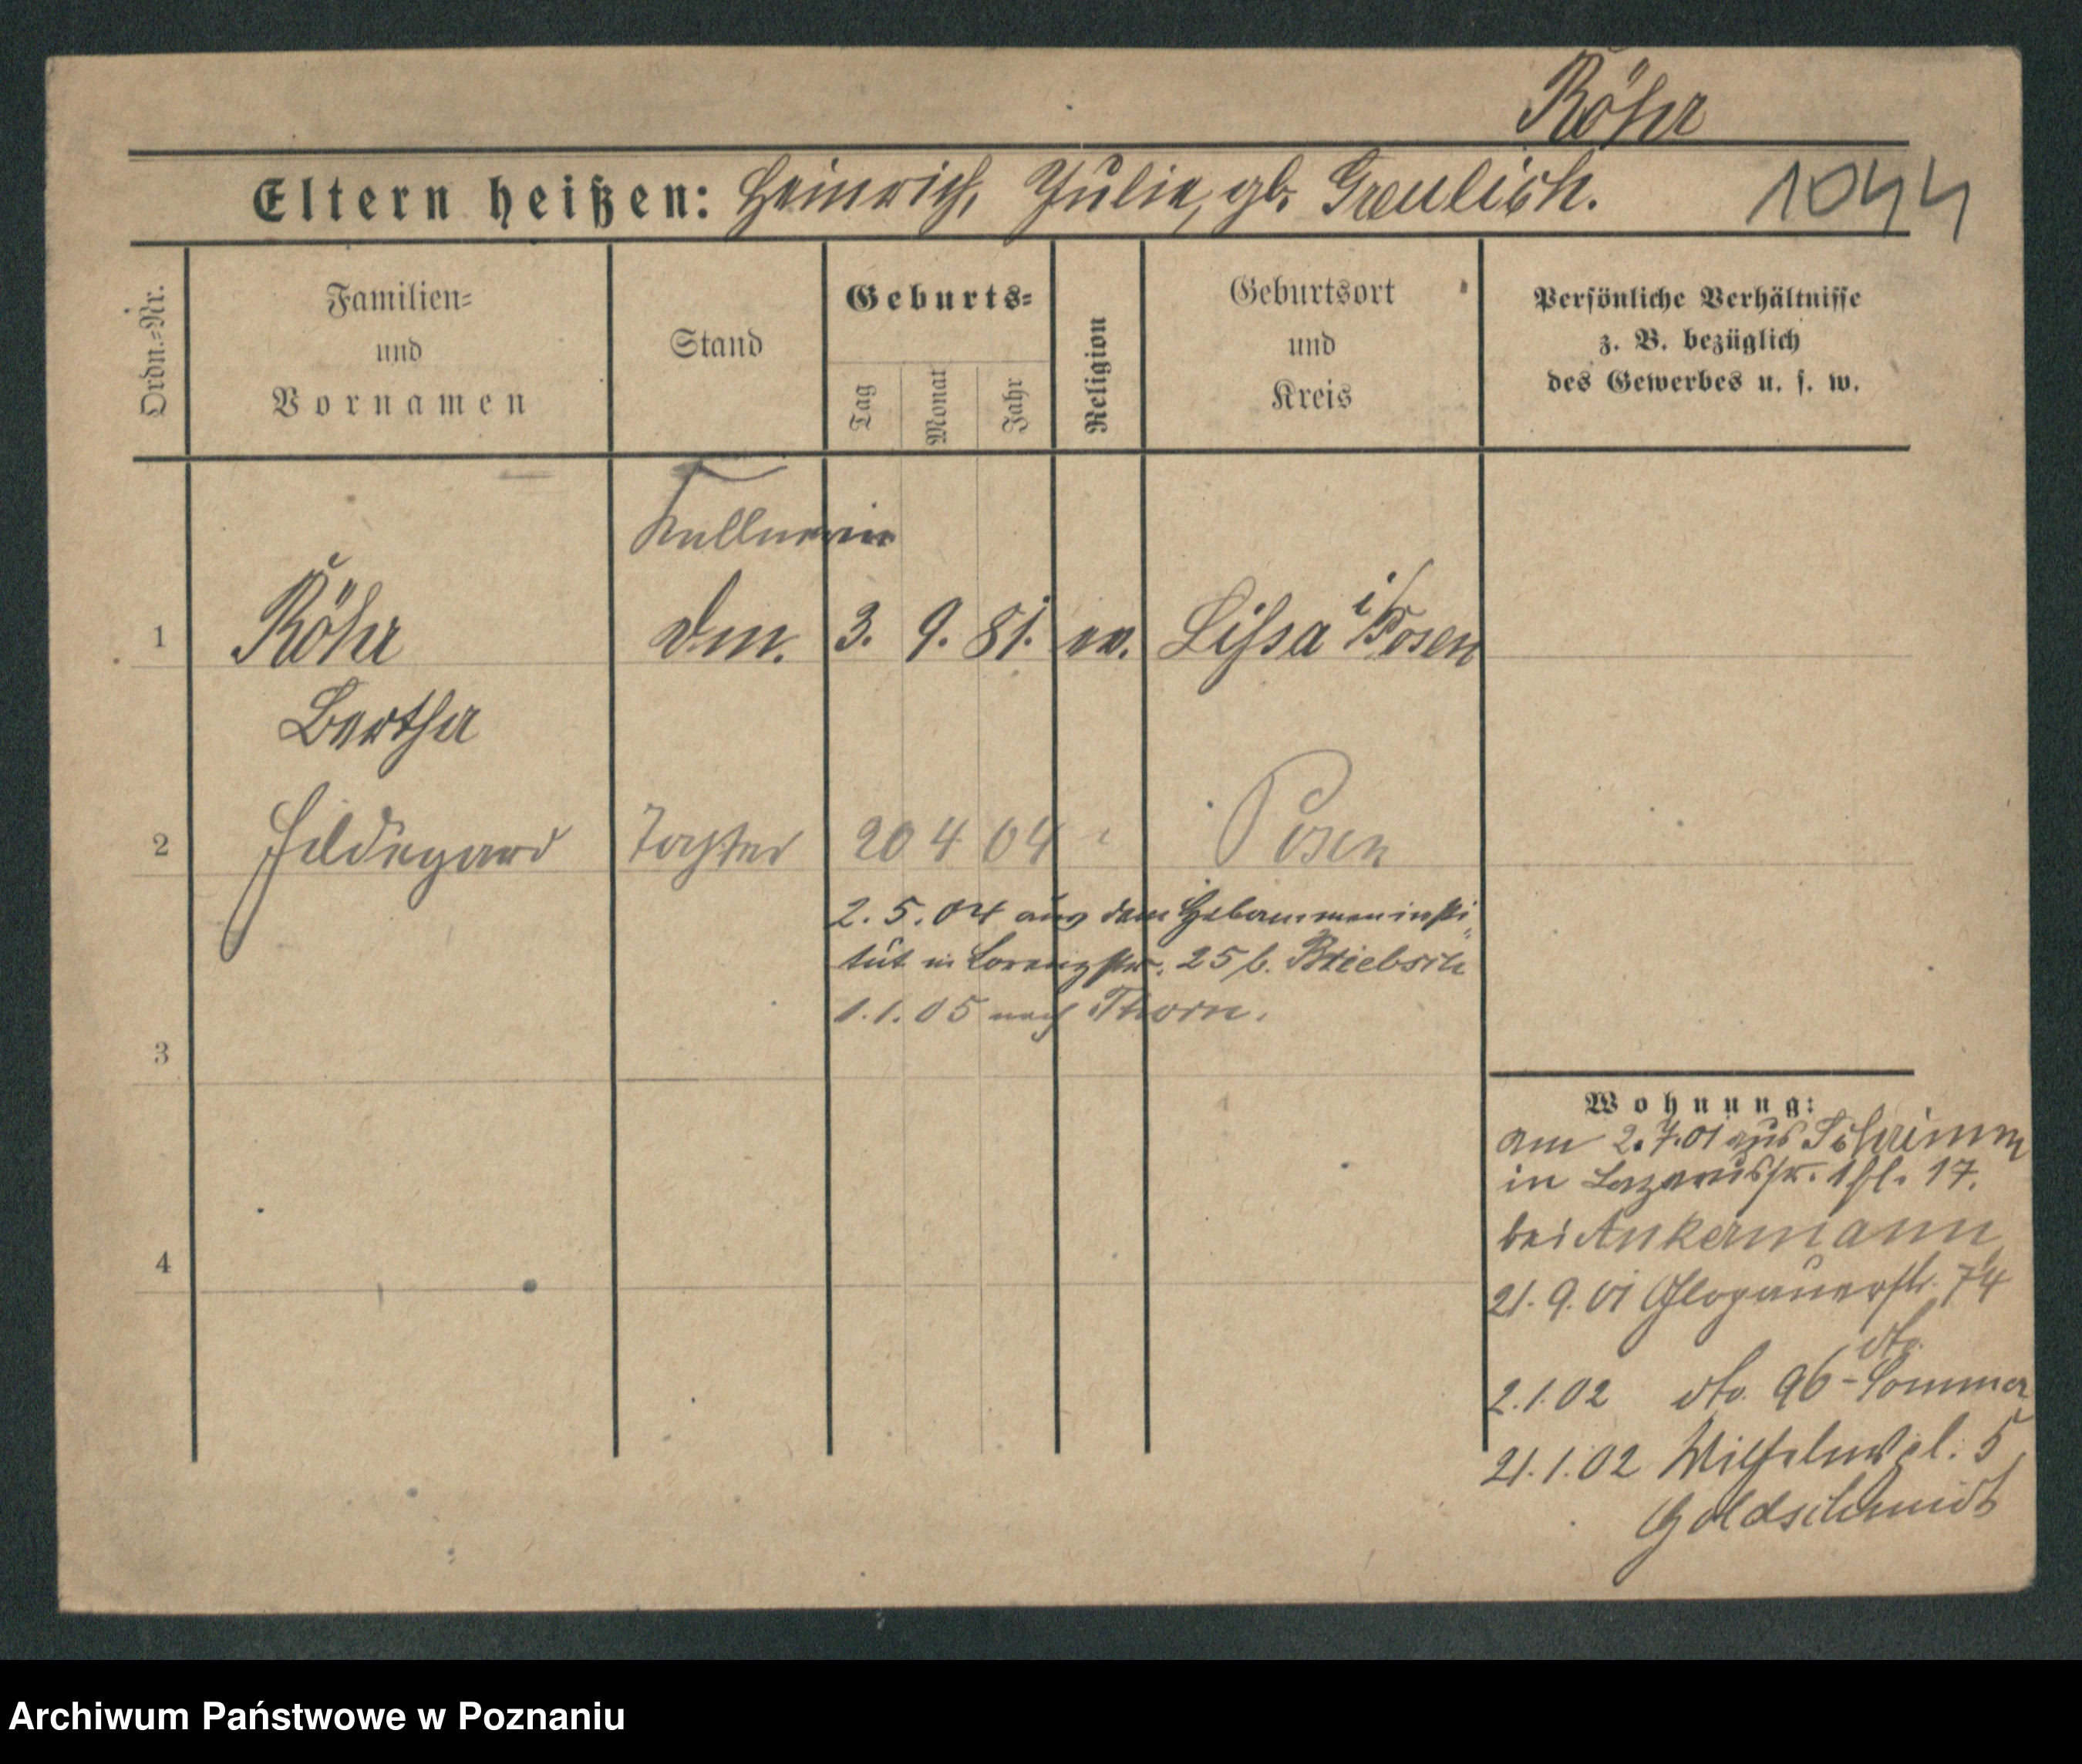 Röhr
Eltern heißen: Heinrich, Julie, gb. Greulich.
1044
Ordn.-Nr.
Familien-
und
Vornamen
Stand
Geburts-
Tag
Monat
Jahr
Religion
Geburtsort
und
Kreis
Persönliche Verhältnisse
z. B. bezüglich
des Gewerbes u. s. w.
Kellnerin
1 Röhr 3. 9. 81. ev. Lissa i/Posen
Bertha
2 Hildegard Tochter 20 4 04 Posen
2. 5. 04 aus dem Hebammeninsti-
tut in 25 b.
1.1.05 nach Thorn.
3
4
Wohnung:
am 2.7.01 aus Schrimm
in Lazarusstr. 17.
bei Ankermann
21.9.01 Glogauerstr. 74
dto.
2.1.02 dto. 96 - Sommer
21.1.02 Wilhelmspl. 5
Goldschmidt
Archiwum Państwowe w Poznaniu